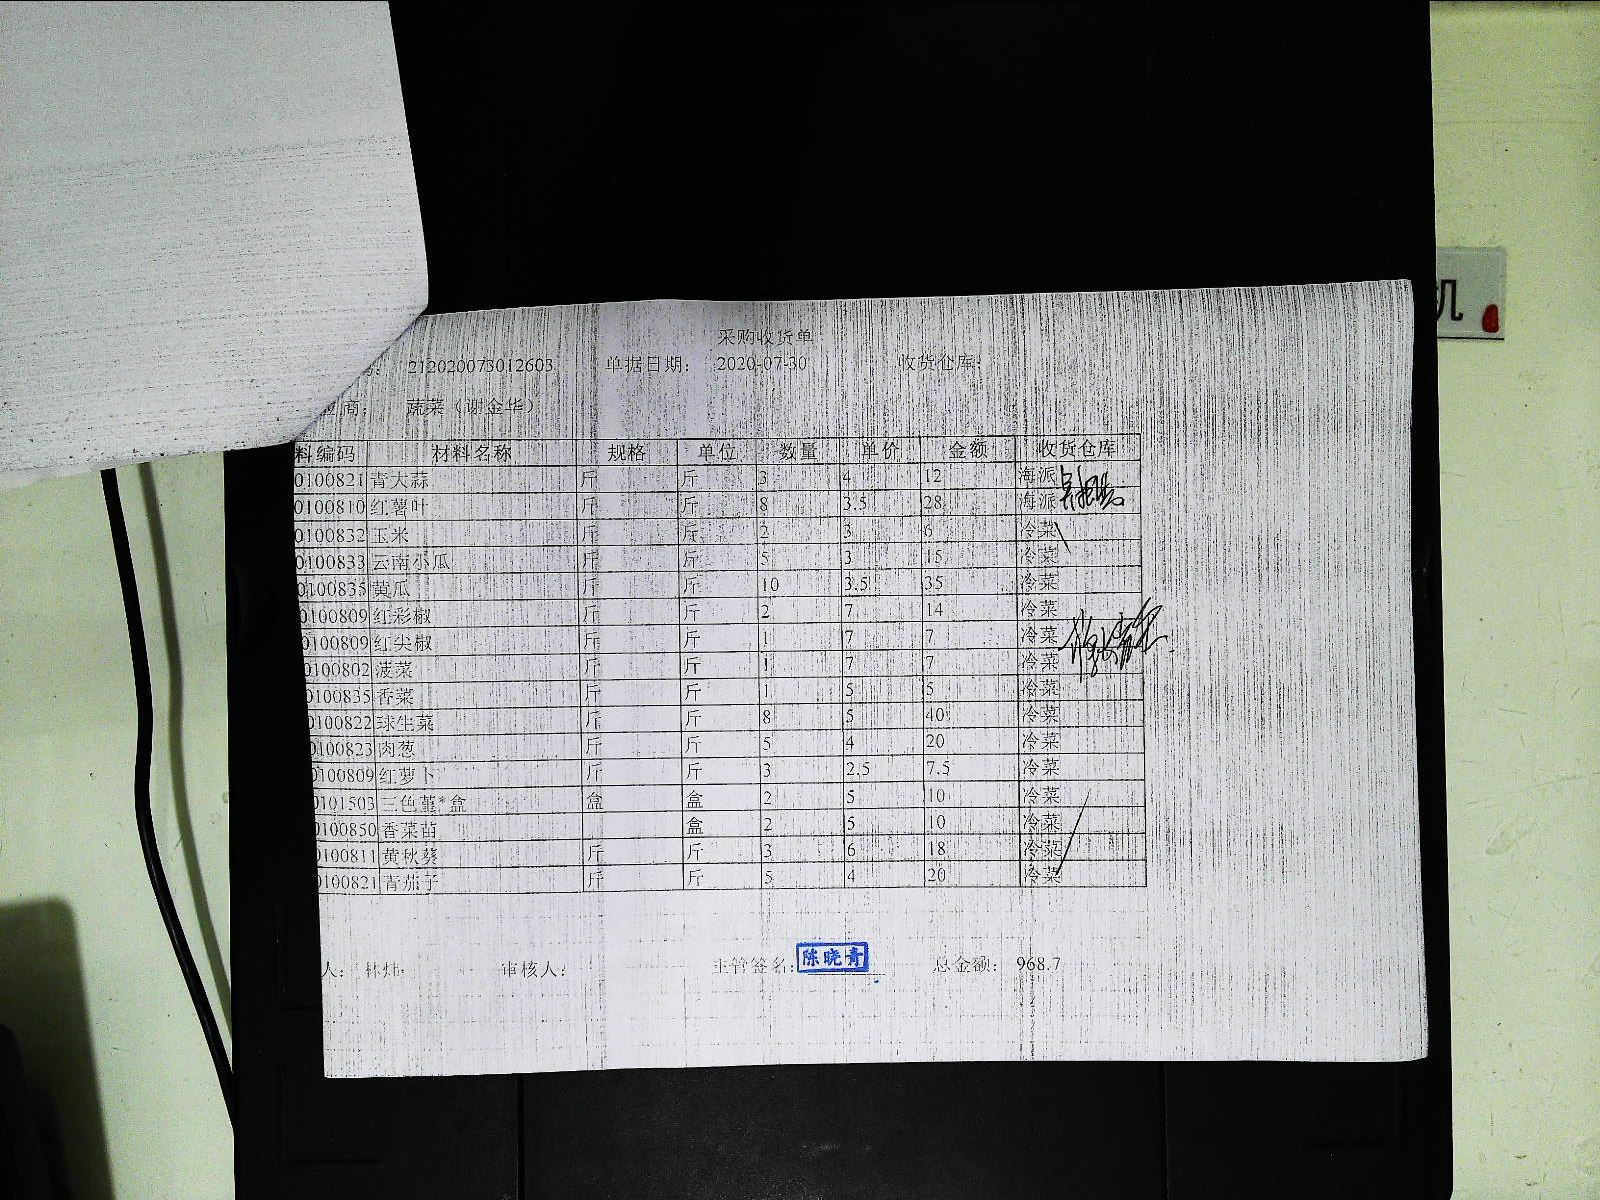 采购收货单
212020073012603 单据日期： 2020-07-30 收货仓库：
应商： 蔬菜（谢金华）
料编码 材料名称 规格 单位 数量 单价 金额 收货仓库
0100821 青大蒜 斤 斤 3 4 12 海派
0100810 红薯叶 斤 斤 8 3.5 28 海派
0100832 玉米 斤 斤 2 3 6 冷菜
0100833 云南小瓜 斤 斤 5 3 15 冷菜
0100835 黄瓜 斤 斤 10 3.5 35 冷菜
0100809 红彩椒 斤 斤 2 7 14 冷菜
0100809 红尖椒 斤 斤 1 7 7 冷菜
0100802 菠菜 斤 斤 1 7 7 冷菜
0100835 香菜 斤 斤 1 5 5 冷菜
0100822 球生菜 斤 斤 8 5 40 冷菜
0100823 肉葱 斤 斤 5 4 20 冷菜
0100809 红萝卜 斤 斤 3 2.5 7.5 冷菜
0101503 三色堇*盒 盒 盒 2 5 10 冷菜
0100850 香菜苗 盒 2 5 10 冷菜
0100811 黄秋葵 斤 斤 3 6 18 冷菜
0100821 青茄子 斤 斤 5 4 20 冷菜
人： 林炜 审核人： 主管签名： 陈晓青 总金额： 968.7
机